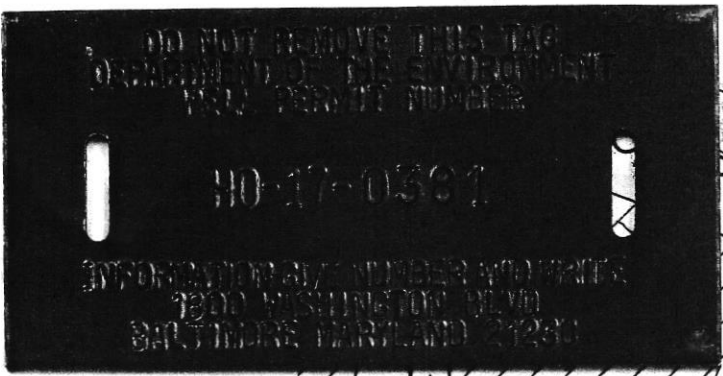 DO NOT REMOVE THIS TAG
DEPARTMENT OF THE ENVIRONMENT
WELL PERMIT NUMBER
HO-17-0381
INFORMATION-GIVE NUMBER AND WRITE
1800 WASHINGTON BLVD
BALTIMORE MARYLAND 21230